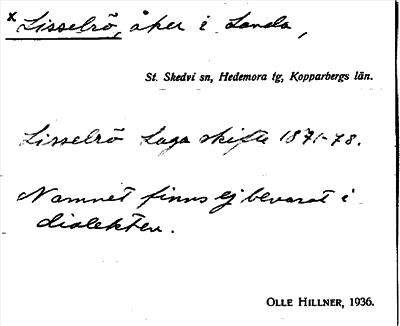 x Lisselrö, åker i Landa,
St. Skedvi sn, Hedemora tg, Kopparbergs län.
Lisselrö Laga skifte 1871-78.
Namnet finns ej bevarat i
dialekten.
OLLE HILLNER, 1936.